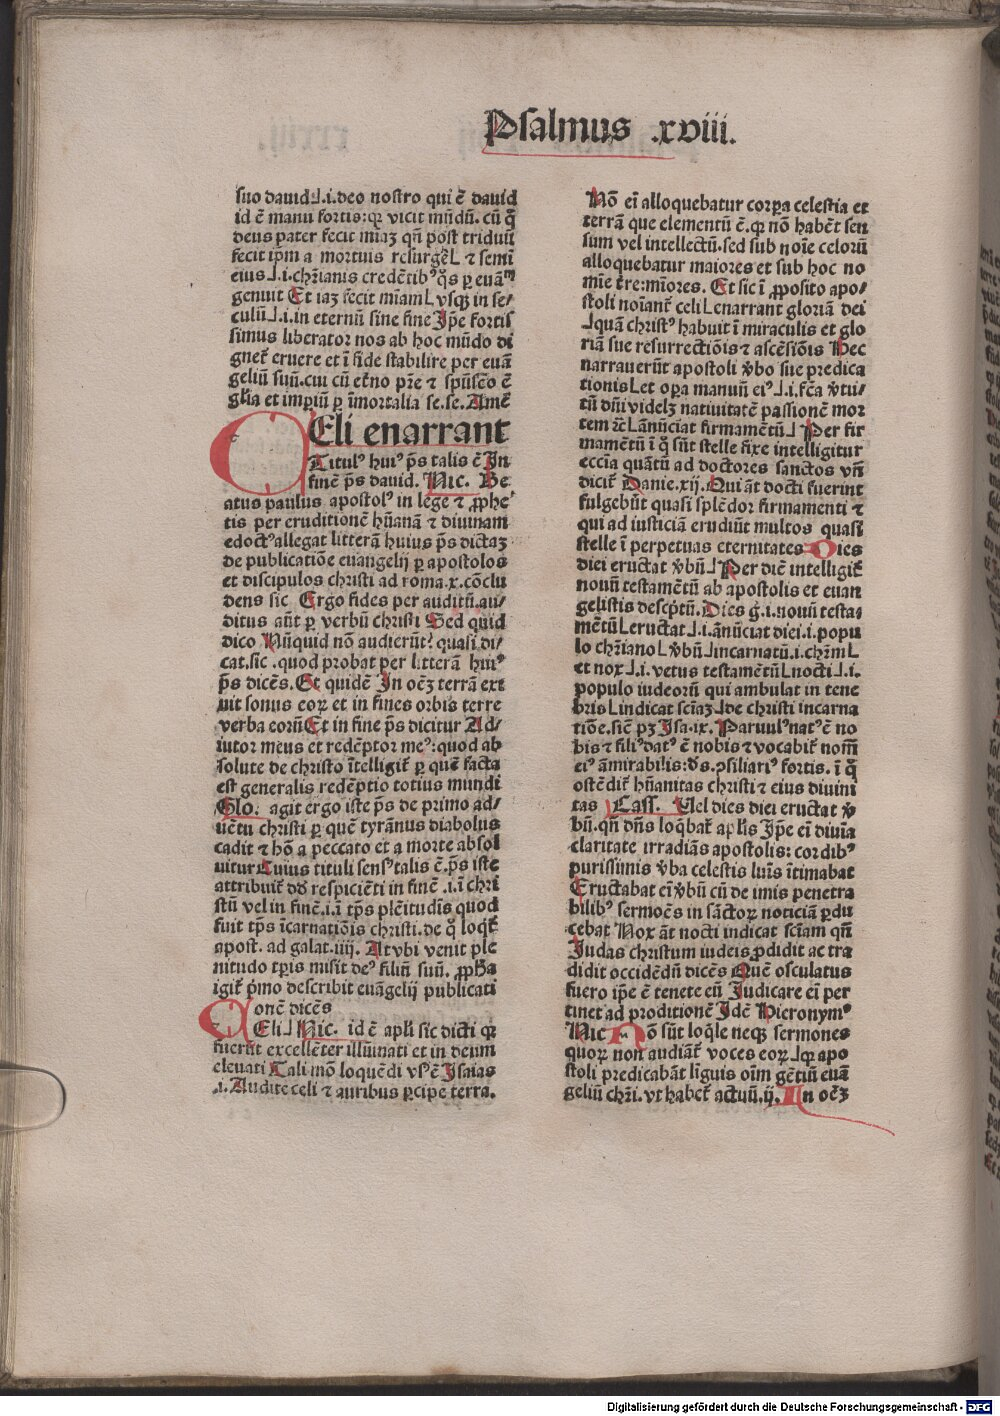 Psalmus .xviii.
suo dauid⅃.i.deo nostro qui ē dauid
id ē manu fortis:qꝛ vicit mūdū. cū q̄
deus pater fecit miaꝫ qn̄ post triduū
fecit ip̄m a mortuis resurgēL ⁊ semī
eius⅃.i.chr̄ianis credētibꝰ q̄s ꝑ euāᵐ
genuit Et iaꝫ fecit mīamL vsqꝫ in se/
culū⅃.i.in eternū sine fine Ip̄e fortis
simus liberator nos ab hoc mūdo di
gnet᷑ eruere et ī fide stabilire per euā
geliū suū.cui cū et̄no pr̄e ⁊ sp̄usc̄o ē
gl̄ia et imꝑiū ꝑ īmortalia se.se. Amē
CEli enarrant
Titulꝰ huiꝰ p̄s talis ē In
finē p̄s dauid. Nic. Be
atus paulus apostolꝰ in lege ⁊ ꝓphe
tis per eruditionē hūanā ⁊ diuinam
edoctꝰ allegat litterā huius p̄s dictaꝫ
de publicatiōe euangelij ꝑ apostolos
et discipulos christi ad roma.x.cōclu
dens sic Ergo fides per auditū.au/
ditus aūt ꝑ verbū christi Sed quid
dico Nūquid nō audierūt? quasi di/
cat.sic .quod probat per litterā huiꝰ
p̄s dicēs. Et quidē In oēꝫ terrā exi
uit sonus eoꝝ et in fines orbis terre
verba eorū Et in fine p̄s dicitur Ad/
iutor meus et redēptor meꝰ:quod ab
solute de christo ītelligit᷑ ꝑ quē facta
est generalis redēptio totius mundi
Glo. agit ergo iste p̄s de primo ad/
uētu christi ꝑ quē tyrānus diabolus
cadit ⁊ hō a peccato et a morte absol
uitur Cuius tituli sensꝰ talis ē.p̄s iste
attribuit᷑ dd̄ respiciēti in finē .i.ī chr̄i
stū vel in finē.i.ī tp̄s plēitudīs quod
fuit tp̄s īcarnatiōis christi.de q̊ loqt᷑
apost. ad galat.iiij. At vbi venit ple
nitudo tꝑis misit deꝰ filiū suū. ꝓph̄a
igit᷑ pͥmo describit euāgelij publicati
onē dicēs
CEli⅃ Nic. id ē apl̄i sic dicti qꝛ
fuerūt excellēter illūinati et in deum
eleuati Tali mō loquēdi vsꝰ ē Isaias
.i. Audite celi ⁊ auribus ꝑcipe terra.
Nō eī alloquebatur corꝑa celestia et
terrā que elementū ē.qꝛ nō habēt sen
sum vel intellectū.sed sub noīe celorū
alloquebatur maiores et sub hoc no
mīe t̄re:mīores. Et sic ī ꝓposito apo/
stoli noīant᷑ celi Lenarrant gloriā dei
⅃quā christꝰ habuit ī miraculis et glo
riā sue resurrectiōis ⁊ ascēsiōis Hec
narrauerūt apostoli v̄bo sue predica
tionis Let oꝑa manuū eiꝰ⅃.i.fc̄a v̄tu/
tū dn̄i videlꝫ natiuitatē passionē mor
tem ⁊c̄ Lānūciat firmamētū⅃ Per fir
mamētū ī q̊ sūt stelle fixe intelligitur
ecc̄ia quātū ad doctores sanctos vn̄
dicit᷑ Danie.xij. Qui āt docti fuerint
fulgebūt quasi splēdor firmamenti ⁊
qui ad iusticiā erudiūt multos quasi
stelle ī perpetuas eternitates Dies
diei eructat v̄bū⅃ Per diē intelligit᷑
nouū testamētū ab apostolis et euan
gelistis descp̄tū. Dies g̊.i.nouū testa/
mētū Leructat⅃.i.ānūciat diei.i.popu
lo chr̄iano L v̄bū⅃ incarnatū.i.chr̄m L
et nox⅃.i. vetus testamētū L nocti⅃.i.
populo iudeorū qui ambulat in tene
bris Lindicat sciaꝫ⅃de christi incarna
tiōe.sicē pꝫ Isa.ix. Paruulꝰ natꝰ ē no
bis ⁊ filiꝰ datꝰ ē nobis ⁊ vocabit᷑ nomē
eiꝰ āmirabilis:ds̄.ꝯsiliariꝰ fortis. ī q̊
ostēdit᷑ hūanitas christi ⁊ eius diuini
tas Cass. Vel dies diei eructat v̄
bū.qn̄ dn̄s loqbat᷑ apl̄is Ip̄e eī diuīa
claritate irradiās apostolis: cordibꝰ
purissimis v̄ba celestis luīs ītimabat
Eructabat eī v̄bū cū de imis penetra
bilibꝰ sermoēs in sāctoꝝ noticiā ꝑdu
cebat Nox āt nocti indicat sciam qn̄
Judas christum iudeis ꝓdidit ac tra
didit occidēdū dicēs Quē osculatus
fuero ip̄e ē tenete eū Iudicare eī per
tinet ad proditionē Idē Hieronymꝰ
Nic Nō sūt loq̄le neqꝫ sermones
quoꝝ non audiāt᷑ voces eoꝝ⅃qꝛ apo
stoli predicabāt līguis oīm gētiū euā
geliū chr̄i.vt habet᷑ actuū.ij. In oēꝫ
Digitalisierung gefördert durch die Deutsche Forschungsgemeinschaft - DFG